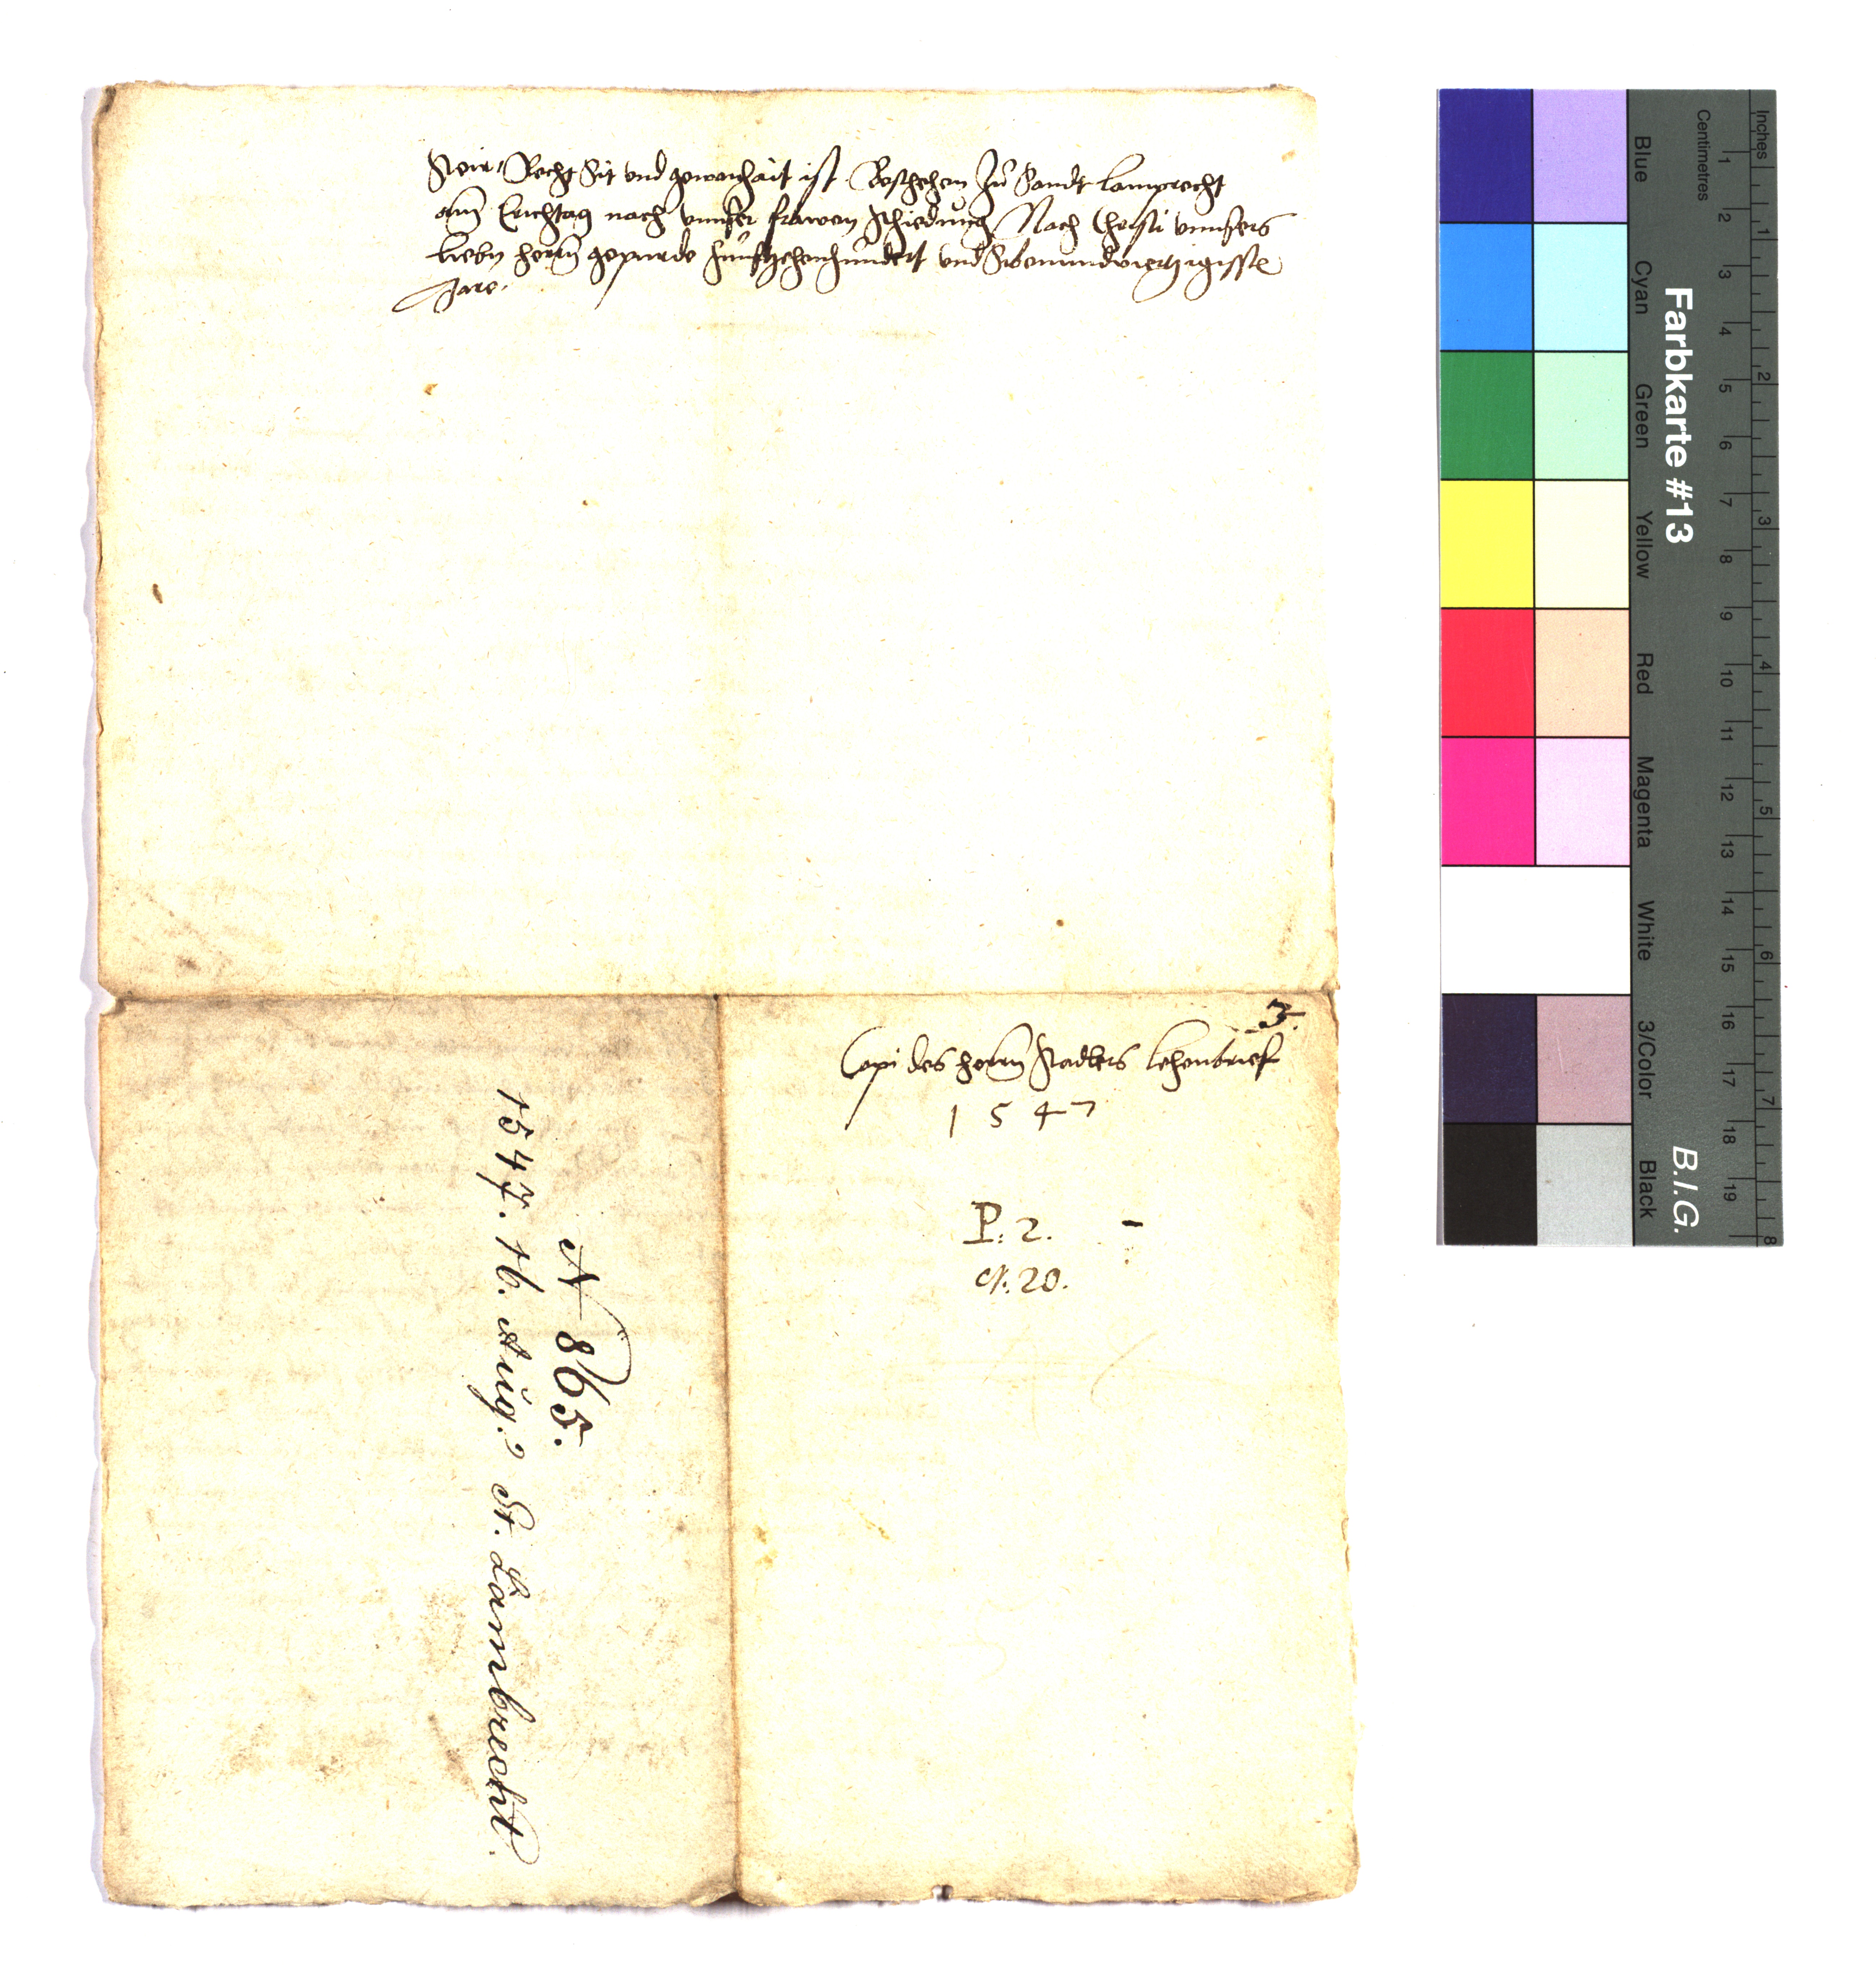 Steir, Recht Sit vnd gewonhait ist. Beschehen Zu Sandt Lamprecht
am Erichtag nach vnnser frawen schiedung Nach Christi vnnsers
lieben herrn gepurde Funfftzehenhundert vnd Sibenundviertzigisste
Jare.
3.
Copi des herrn Stadlers lehenbrief
1547
P. 2.
N. 20.
N 865.
1547. 16. Aug.? St. Lambrecht.
Farbkarte #13
B.I.G.
Centimetres
Inches
1 2 3 4 5 6 7 8 9 10 11 12 13 14 15 16 17 18 19
1 2 3 4 5 6 7 8
Blue
Cyan
Green
Yellow
Red
Magenta
White
3/Color
Black